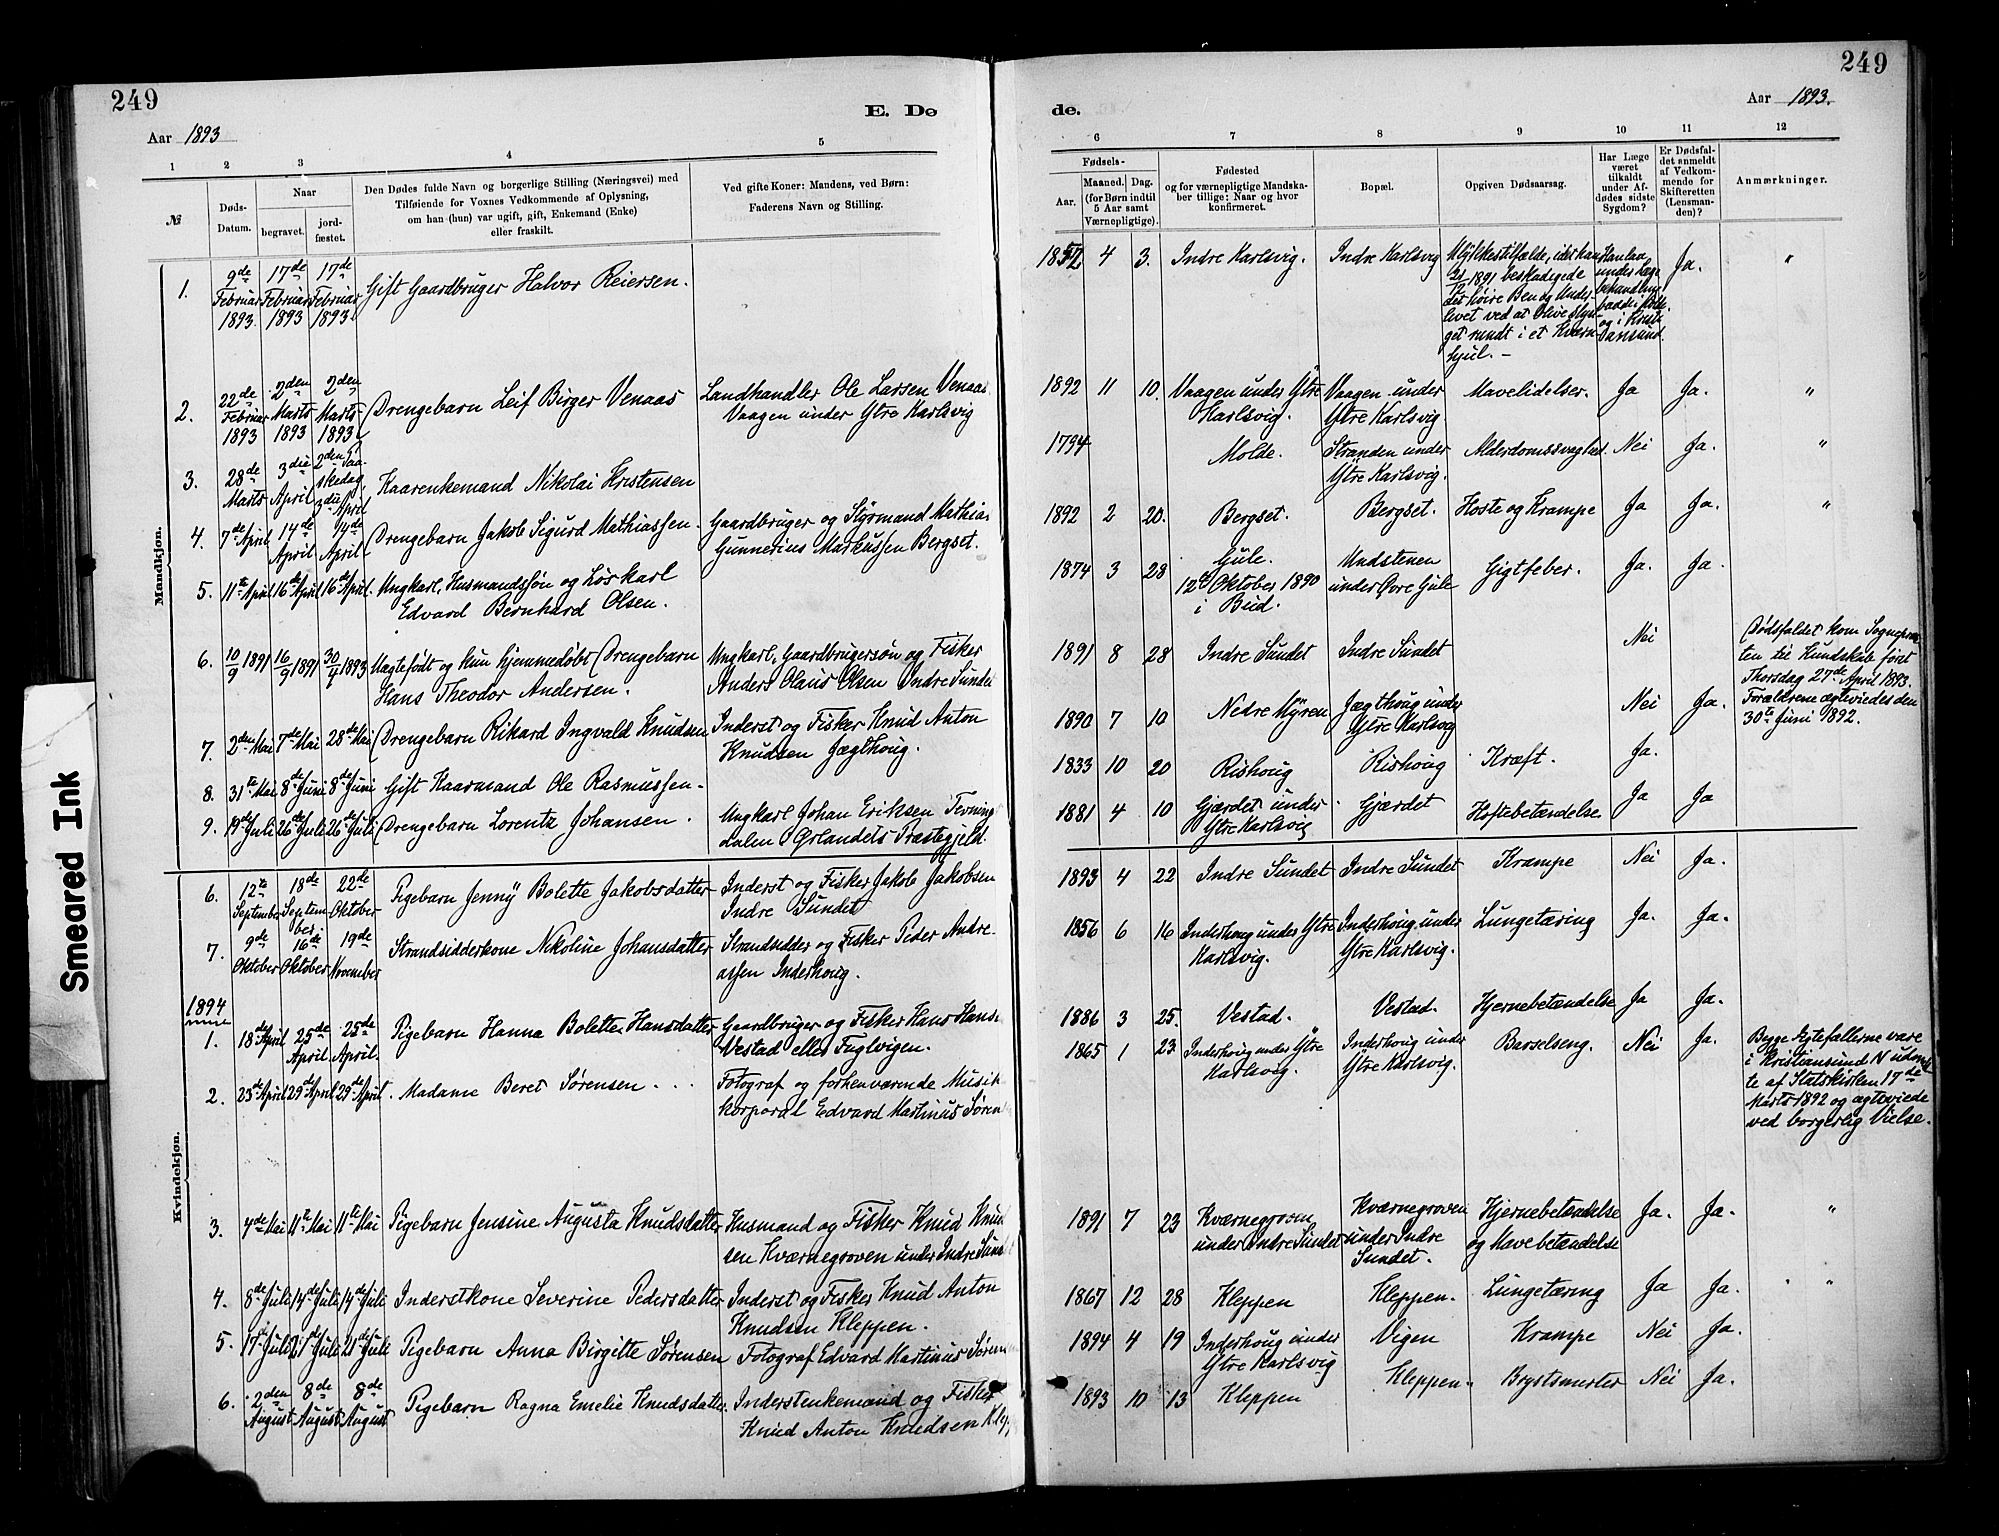 249
E. Dø
Aar 1893
1 2 3 4 5
№
Døds-Datum.
Naar
begravet.
jord-fæstet.
Den Dødes fulde Navn og borgerlige Stilling (Næringsvei) med
Tilføiende for Voxnes Vedkommende af Oplysning,
om han (hun) var ugift, gift, Enkemand (Enke)
eller fraskilt.
Ved gifte Koner: Mandens, ved Børn:
Faderens Navn og Stilling.
Mandkjøn.
1. 9de Februar 1893. 17de Februar 1893 17de Februar 1893. Gift Gaardbruger Halvor Reiersen.
2. 22de Februar 1893 2den Marts 1893 2den Marts 1893 Drengebarn Leif Birger Venaas Landhandler Ole Larsen Venaas
Vaagen under Ytre Karlsvig
3. 28de Marts 3die April 2den Paaskedag, 3die April Kaarenkemand Nikolai Kristensen
4. 7de April 14de April 14de April Drengebarn Jakob Sigurd Mathiassen. Gaardbruger og Styrmand Mathias
Gunnerius Markussen Bergset.
5. 11te April 16de April 16de April. Ungkarl, Husmandssøn og Løskarl
Edvard Bernhard Olsen.
6. 10/9 1891 16/9 1891 30/4 1893 Uægtefødt og kun hjemmedøbt Drengebarn Ungkarl, Gaardbrugersøn og Fisker
Hans Theodor Andersen. Anders Olaus Olsen Indre Sundet
7. 2den Mai 7de Mai 28de Mai Drengebarn Rikard Ingvald Knudsen Inderst og Fisker Knud Anton
Knudsen Jægthoug.
8. 31te Mai 8de Juni 8de Juni Gift Kaarmand Ole Rasmussen.
9. 19de Juli 26de Juli 26de Juli Drengebarn Lorentz Johansen. Ungkarl Johan Eriksen Tevning
dalen Ørlandets Præstegjeld.
Kvindekjøn.
6. 12te September 18de September 22de Oktober Pigebarn Jenny Bolette Jakobsdatter Inderst og Fisker Jakob Jakobsen
Indre Sundet
7. 9de Oktober 16de Oktober 19de November Strandsidderkone Nikoline Johansdatter Strandsidder og Fisker Peder Andre-
assen Inderhoug.
1894
1. 18de April 25de April 25de April. Pigebarn Hanna Bolette Hansdatter Gaardbruger og Fisker Hans Hans
Vestad eller Fuglvigen.
2. 23de April 29de April 29de April. Madame Beret Sørensen ... Fotograf og forhenværende Musik
korporal Edvard Martinus Søren
3. 4de Mai 11te Mai 11te Mai Pigebarn Jensine Augusta Knudsdatter Husmand og Fisker Knud Knud
sen Kværnegroven under Indre Sund
4. 8de Juli 14de Juli 14de Juli Inderstkone Severine Pedersdatter Inderst og Fisker Knud Anton
Knudsen Kleppen.
5. 17de Juli 21de Juli 21de Juli Pigebarn Anna Birgitte Sørensen Fotograf Edvard Martinus Sørensen
6. 2den August 8de August 8de August Pigebarn Ragna Emelie Knudsdatter. Inderstenkemand og Fisker
Knud Anton Knudsen Klep
Smeared Ink
249
de.
Aar 1893.
6 7 8 9 10 11 12
Fødsels-
Aar.
Maaned. Dag.
(for Børn indtil
5 Aar samt
Værnepligtige).
Fødested
og for værnepligtige Mandska-
ber tillige: Naar og hvor
konfirmeret.
Bopæl.
Opgiven Dødsaarsag.
Har Læge
været
tilkaldt
under Af-
dødes sidste
Sygdom?
Er Dødsfal-
det anmeldt
af Vedkom-
mende for
Skifteretten
(Lensman-
den)?
Anmærkninger.
4 3. Indre Karlsvig. Indre Karlsvig Ulykkestilfælde, idet han
1891 beskadigede
det høire Ben og Under-
livet ved at blive slyn-
get rundt i et Kværn-
hjul. –
Han laa
under Læge
behandling
og i Kristi
ansund.
Ja. "
1892 11 10. Vaagen under Ytre
Karlsvig. Vaagen under
Ytre Karlsvig. Mavelidelser. Ja Ja. "
1794 Molde. Stranden under
Ytre Karlsvig. Alderdomssvaghed. Nei Ja. "
1892 2 20. Bergset. Bergset. Hoste og Krampe Ja Ja. "
1874 3 28 Gule.
12te Oktober 1890
i Bud. Undstenen
under Øvre Gule Gigtfeber. Ja. Ja.
1891 8 28 Indre Sundet Indre Sundet Nei Dødsfaldet kom Sognepræs
ten til Kundskab først
Thorsdag 27de April 1893.
Forældrene ægteviedes den
30te Juni 1892.
1890 7 10 Nedre Myren Jægthoug under
Ytre Karlsvig Nei Ja.
1833 10 20 Rishoug Rishoug Kræft. Ja.
1881 4 10 Gjærdet under
Ytre Karlsvig Gjærdet Hoftebetændelse Ja Ja
1893 4 22 Indre Sundet Indre Sundet Krampe Nei Ja.
1856 6 16 Inderhoug under Ytre
Karlsvig. Inderhoug under
Ytre Karlsvig. Lungetæring Ja. Ja.
1886 3 25. Vestad. Vestad. Hjernebetændelse Ja Ja.
1865 1 23 Inderhoug under Ytre
Karlsvig. Inderhoug under
Ytre Karlsvig. Barselseng. Nei Ja. Begge Ægtefællerne vare
i Kristiansund N udmeld
te af Statskirken 17de
Marts 1892 og ægteviede
ved borgerlig Vielse.
1891 7 23 Kværnegroven
under Indre Sundet Kværnegroven
under Indre
Sundet. Hjernebetændelse
og Mavebetændelse Ja. Ja. "
1867 12 28 Kleppen Kleppen. Lungetæring Ja Ja. " "
1894 4 19 Inderhoug under
Ytre Karlsvig Vigen Krampe Nei Ja.
1893 10 13 Kleppen Kleppen. Brystsmerter Nei Ja.